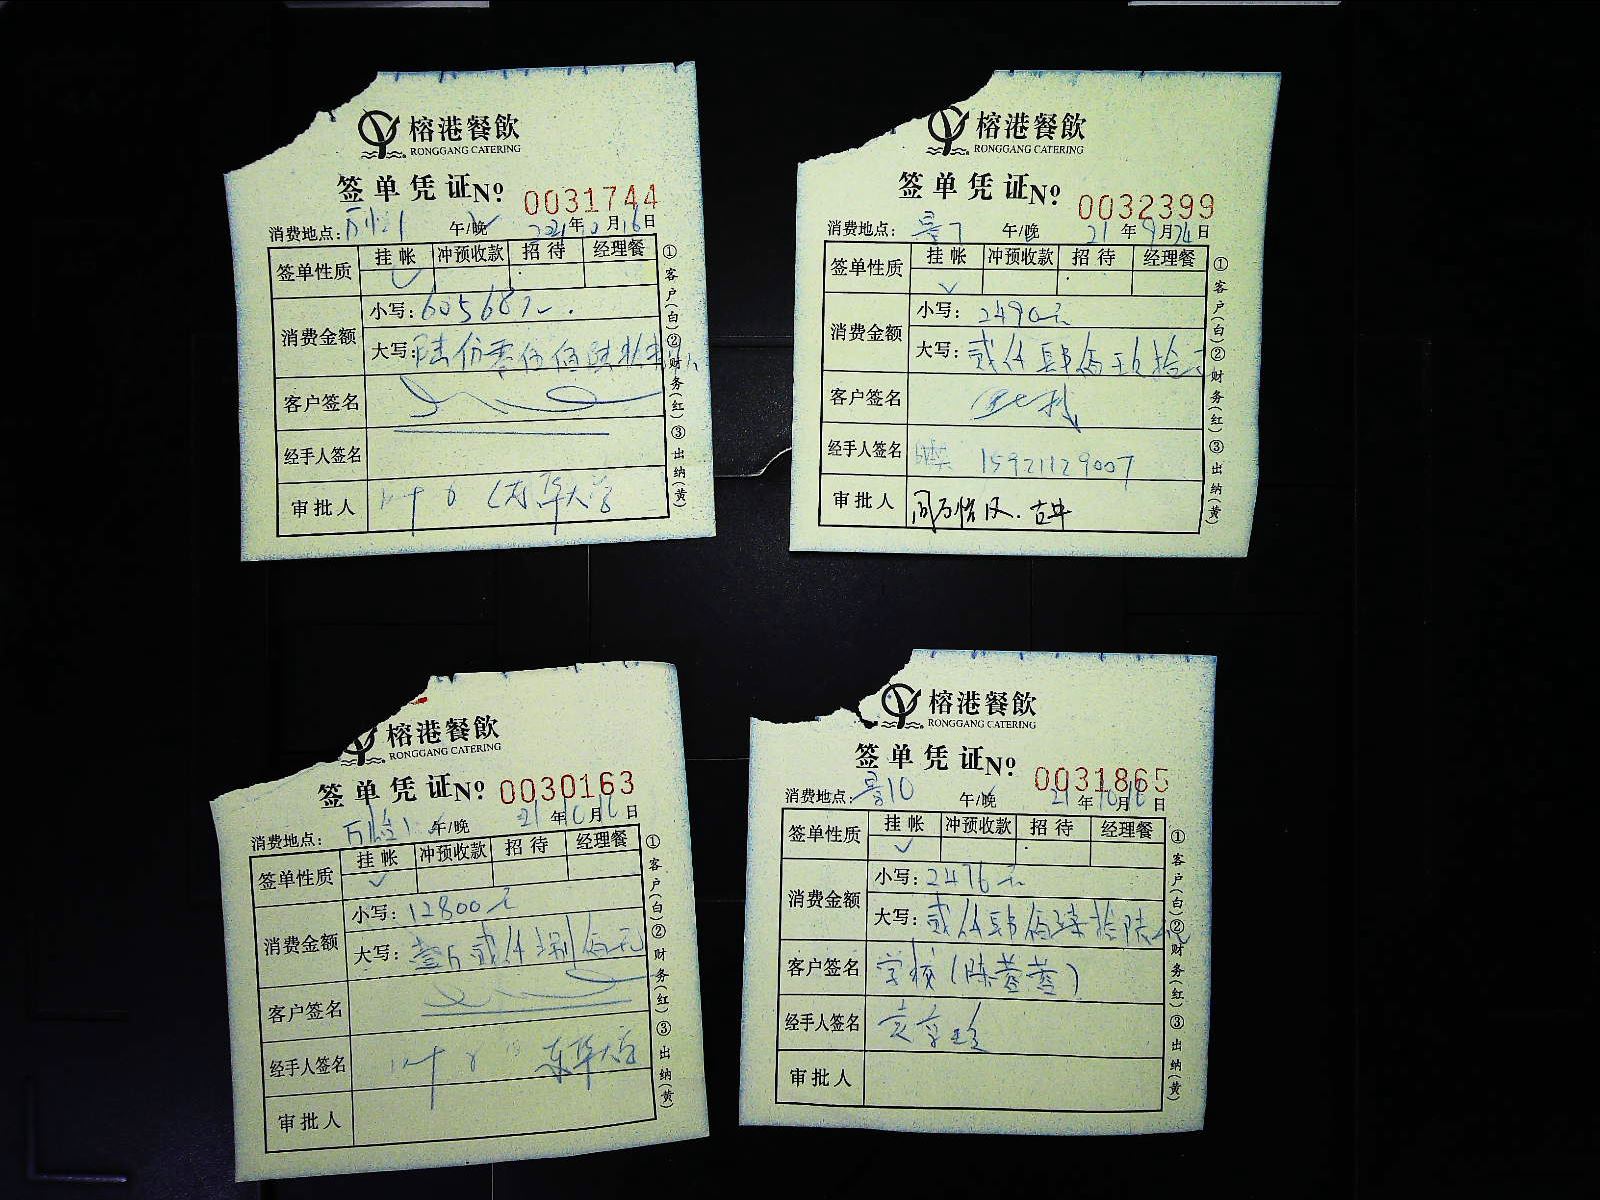 榕港餐飲
RONGGANG CATERING
签单凭证Nº 0031744
消费地点: 午/晚 2021年10月16日
签单性质 挂帐 冲预收款 招待 经理餐
消费金额
小写:
大写:
客户签名
经手人签名
审批人 东华大学
①客户(白)②财务(红)③出纳(黄)
榕港餐飲
RONGGANG CATERING
签单凭证Nº 0032399
消费地点: 景7 午/晚 21年9月24日
签单性质 挂帐 冲预收款 招待 经理餐
消费金额
小写: 2490元
大写: 贰仟肆佰玖拾元
客户签名
经手人签名 15921129007
审批人
①客户(白)②财务(红)③出纳(黄)
榕港餐飲
RONGGANG CATERING
签单凭证Nº 0030163
消费地点: 午/晚 21年10月16日
签单性质 挂帐 冲预收款 招待 经理餐
消费金额
小写: 12800元
大写: 壹万贰仟捌佰元
客户签名
经手人签名 东华大学
审批人
①客户(白)②财务(红)③出纳(黄)
榕港餐飲
RONGGANG CATERING
签单凭证Nº 0031865
消费地点: 景10 午/晚 21年10月16日
签单性质 挂帐 冲预收款 招待 经理餐
消费金额
小写: 2476元
大写: 贰仟肆佰柒拾陆元
客户签名 学校(陈蓉蓉)
经手人签名
审批人
①客户(白)②财务(红)③出纳(黄)